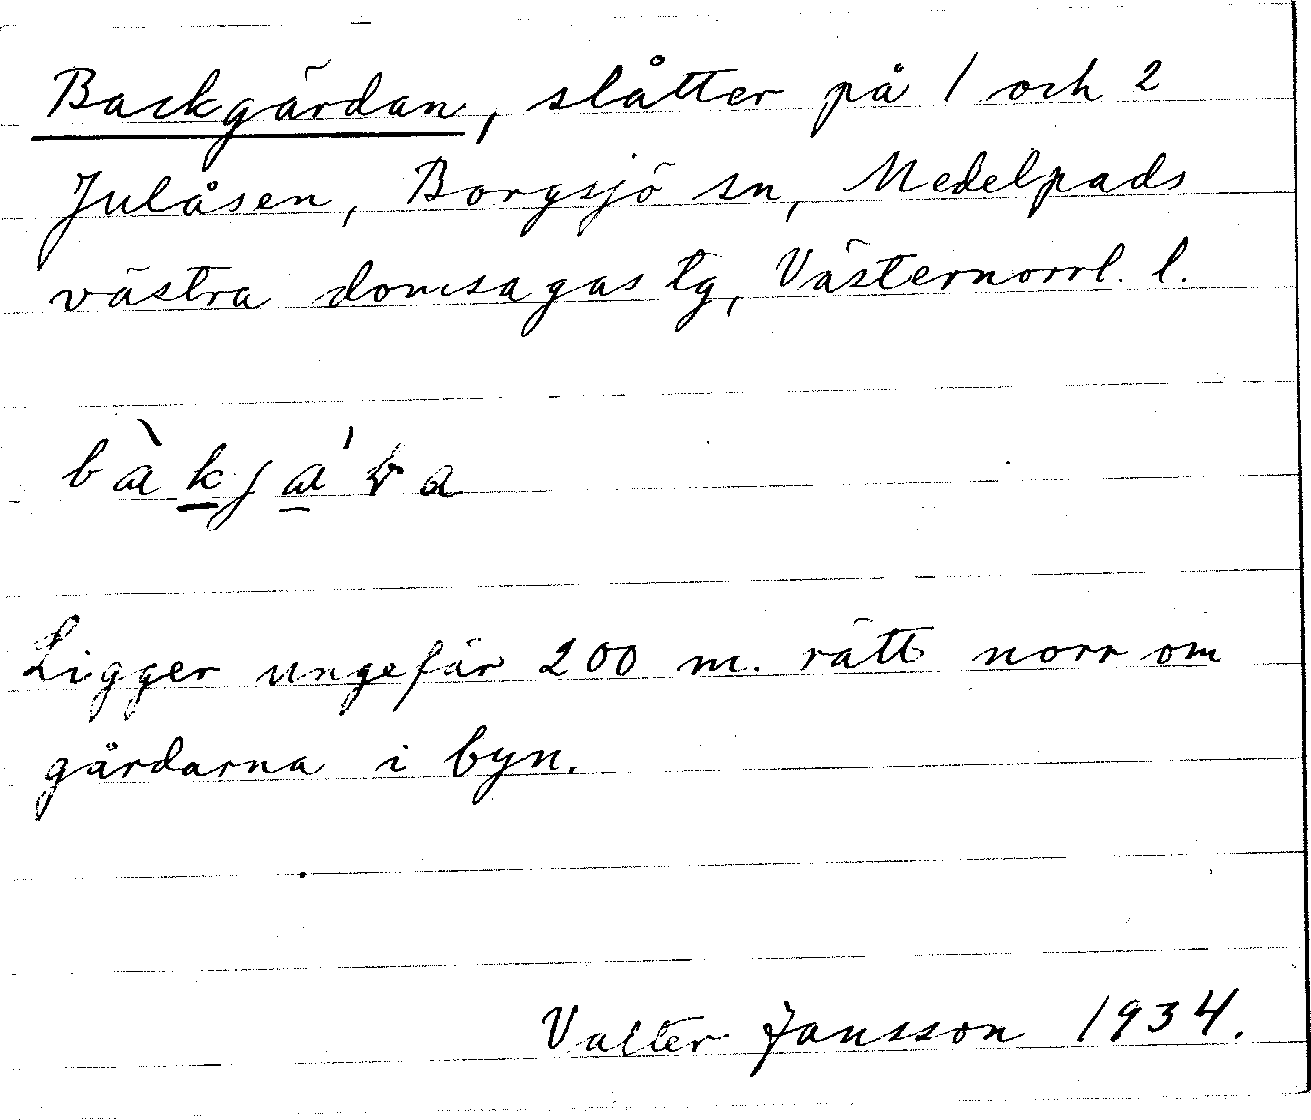 Backgärdan, slåtter på 1 och 2
Julåsen, Borgsjö sn, Medelpads
västra domsagas tg, Västernorrl. l.
Ligger ungefär 200 m. rätt norr om
gårdarna i byn.
Valter Jansson 1934.